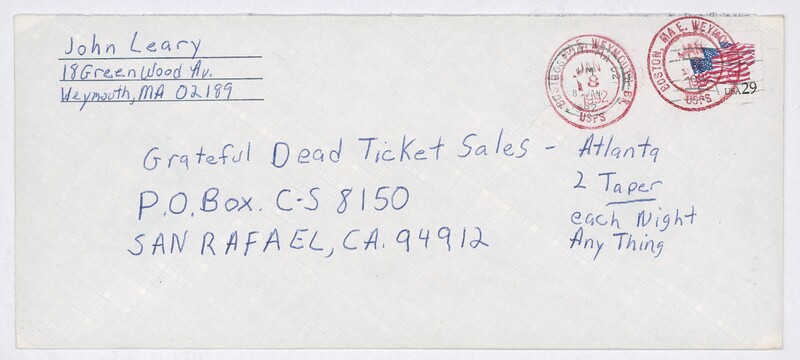 John Leary
18 GreenWood Av.
Weymouth, MA 02189
JAN
18
1992
USPS
BOSTON, MA E. WEYMOUTH
USPS
USA 29
Grateful Dead Ticket Sales - Atlanta
P.O. Box. C-S 8150
SAN RAFAEL, CA. 94912
2 Taper
each Night
Any Thing